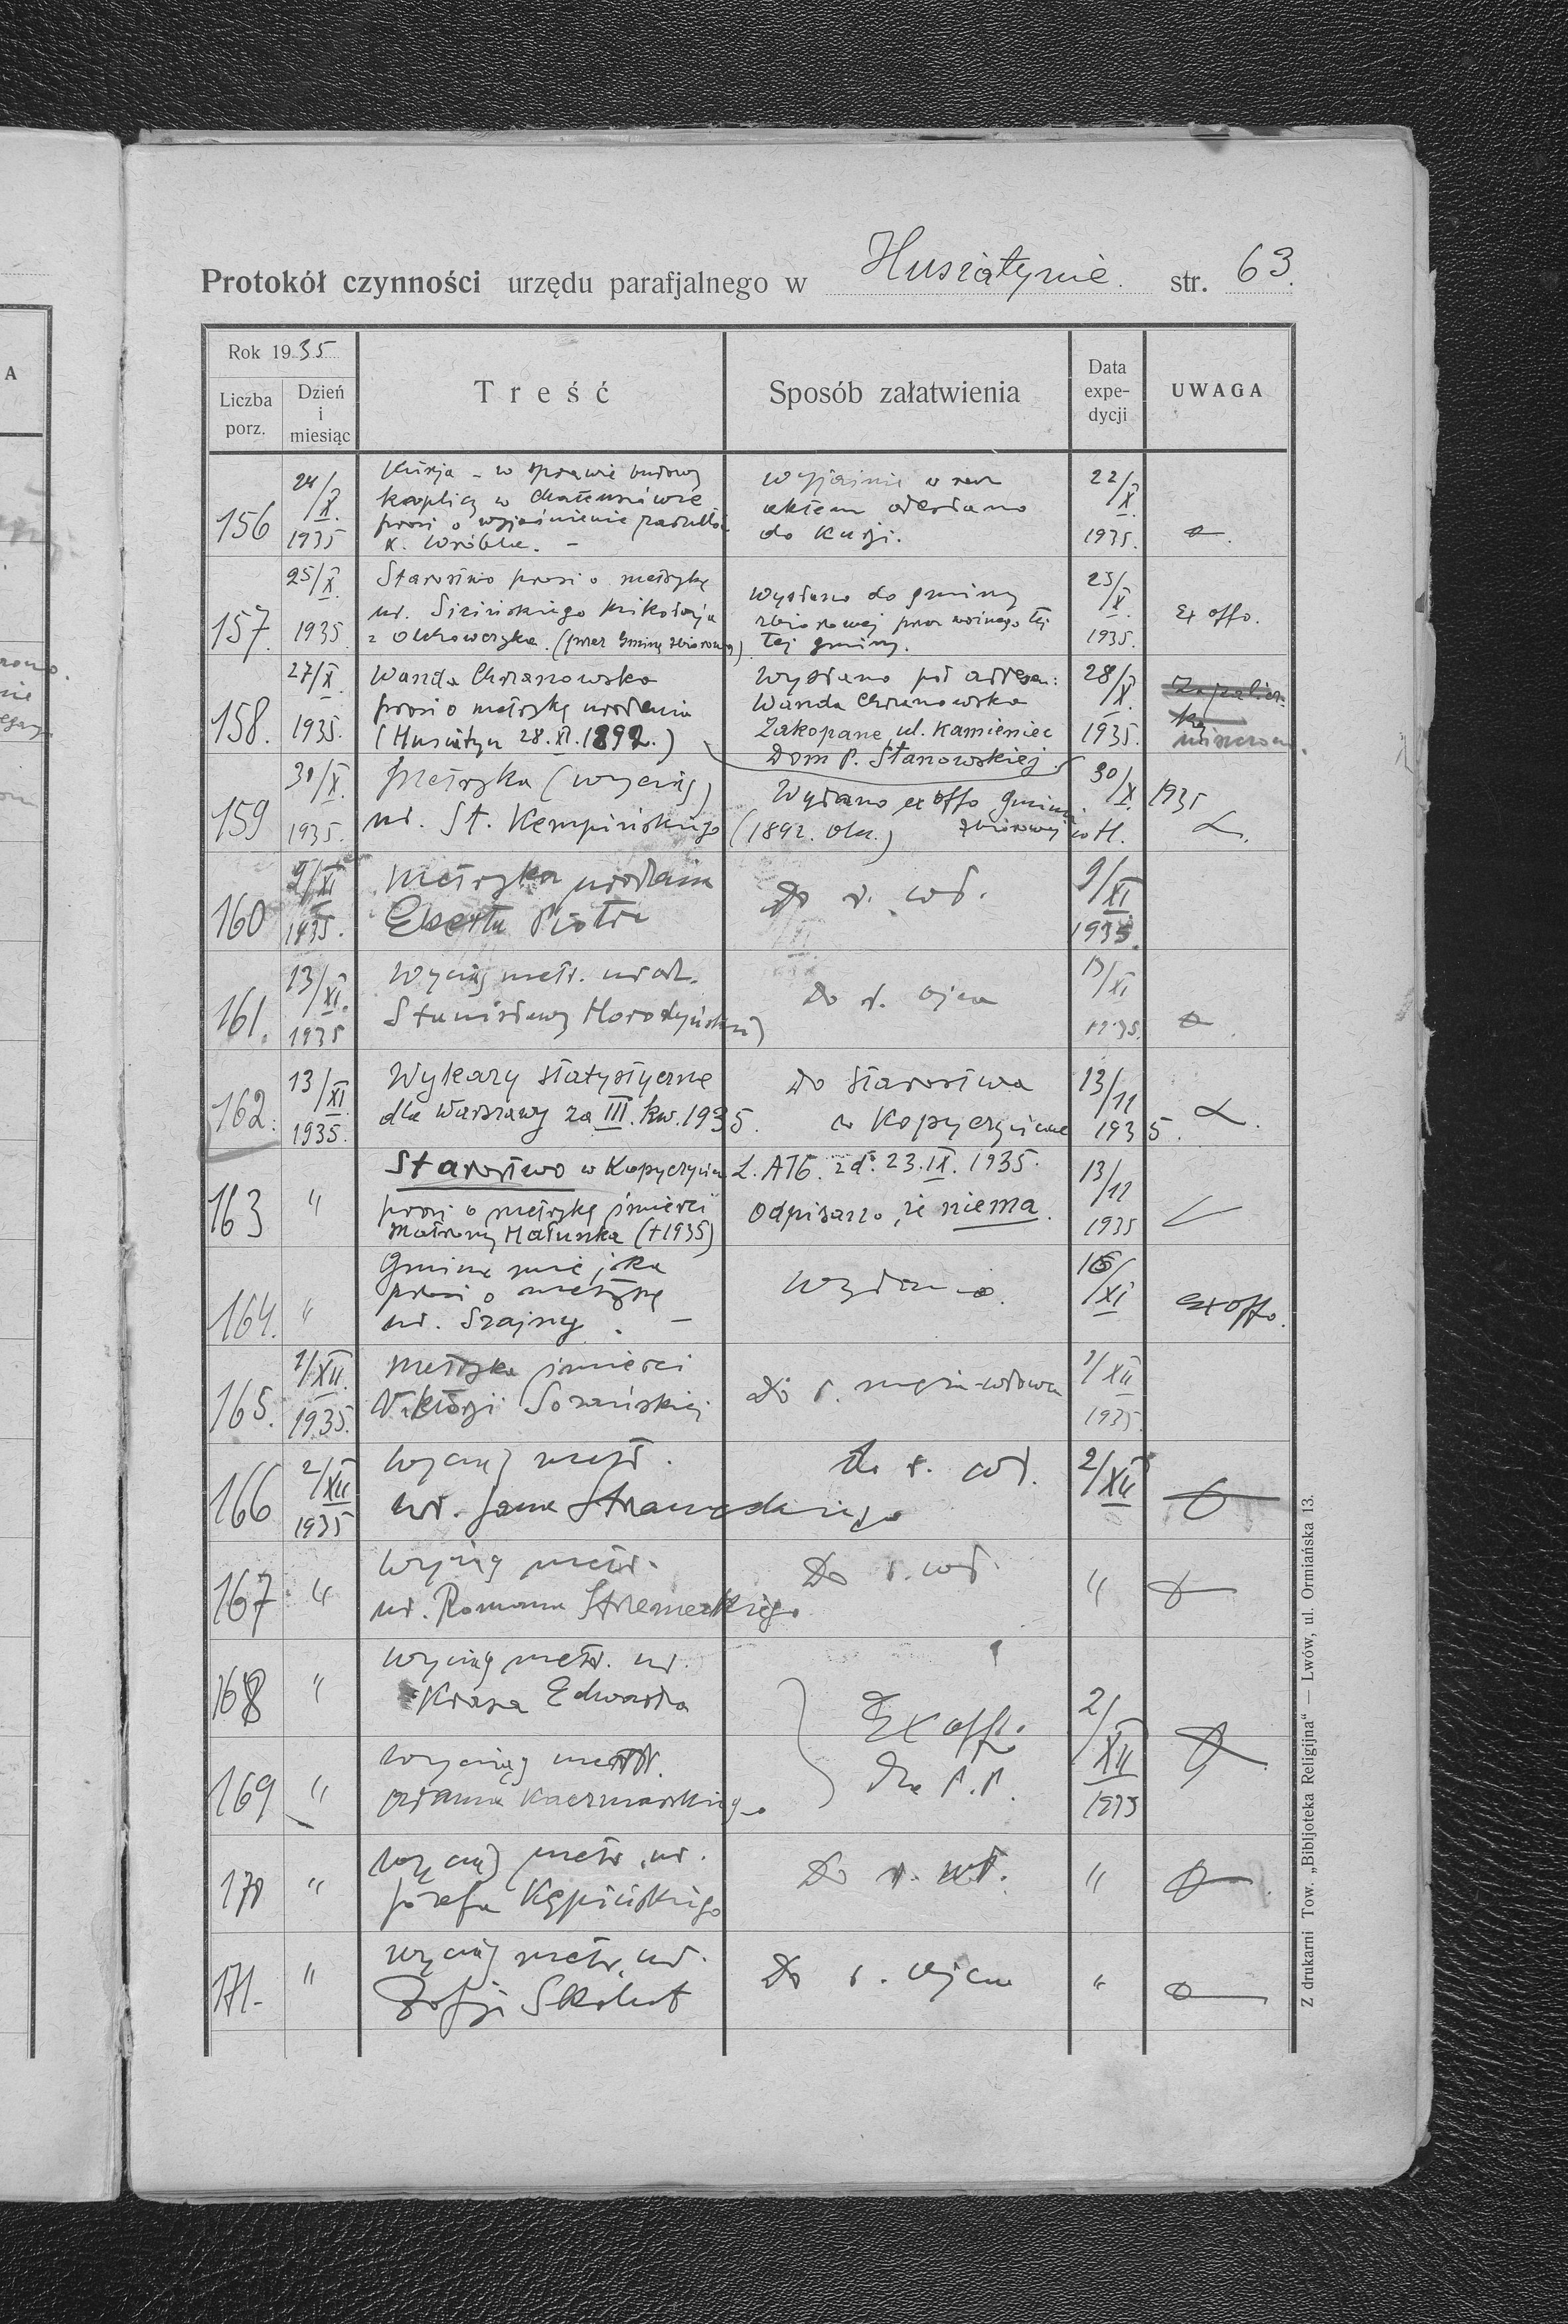 Protokół czynności urzędu parafjalnego w Husiatynie. str. 63.
Rok 1935
Liczba porz.
Dzień i miesiąc
Treść
Sposób załatwienia
Data expe-dycji
UWAGA
156
24/X. 1935
Kurja - w sprawie budowy
kaplicy w
prosi o wyjaśnienie
X. Wróbla. -
do Kurji.
22/X. 1935.
157.
25/X. 1935
Starostwo prosi o metrykę
ur. Mikołaja
z Olchowczyka. (przez Gminę zbiorową)
Wysłano do gminy
zbiorowej przez woźnego tej
tej gminy.
25/X. 1935.
ex offo.
158.
27/X. 1935.
Wanda Chrzanowska
prosi o metrykę urodzenia
(Husiatyn 28.XI.1892.)
Wysłano pod adresem:
Wanda Chrzanowska
Zakopane, ul. Kamieniec
Dom P. Stanowskiej.
28/X. 1935.
159
30/X. 1935.
Metryka (wyciąg)
ur. St. Kempińskiego
Wydano ex offo Gminie
(1892. Olch.) zbiorowej w H.
30/X. 1935
160
9/XI 1935.
Metryka urodzenia
Piotra
Do r. wł.
9/XI 1935.
161.
13/XI. 1935
Wyciąg metr. urodz.
Stanisławy Horodyńskiej
Do r. ojca
13/XI 1935.
162.
13/XI. 1935.
Wykazy statystyczne
dla Warszawy za III. kw. 1935.
Do Starostwa
w Kopyczyńcach
13/11 1935.
163
"
Starostwo w Kopyczyńcach L. A76. z d. 23.IX.1935.
prosi o metrykę śmierci
Matrony Hałuszka (+1935)
Odpisano, że niema.
13/11 1935
164.
"
Gmina miejska
prosi o metrykę
ur. Szajny. -
Wydano.
16/XI
ex offo.
165.
1/XII. 1935.
Metryka śmierci
Wiktorji Sozańskiej
Do r. męża-wdowca
1/XII 1935
166
2/XII 1935
Wyciąg metr.
ur. Jana
do r. wł.
2/XII
167
"
Wyciąg metr.
ur. Romana
Do r. wł.
"
168
"
Wyciąg metr. ur.
Edwarda
Ex offo.
2/XII 1935
169
"
Wyciąg metr.
Adama Kaczmarskiego
dla P.P.
170
"
Wyciąg metr. ur.
Józefa Kępińskiego
Do r. wł.
"
171.
"
Wyciąg metr. ur.
Zofji Skolut
Do r. ojca
"
Z drukarni Tow. „Bibljoteka Religijna“ — Lwów, ul. Ormiańska 13.